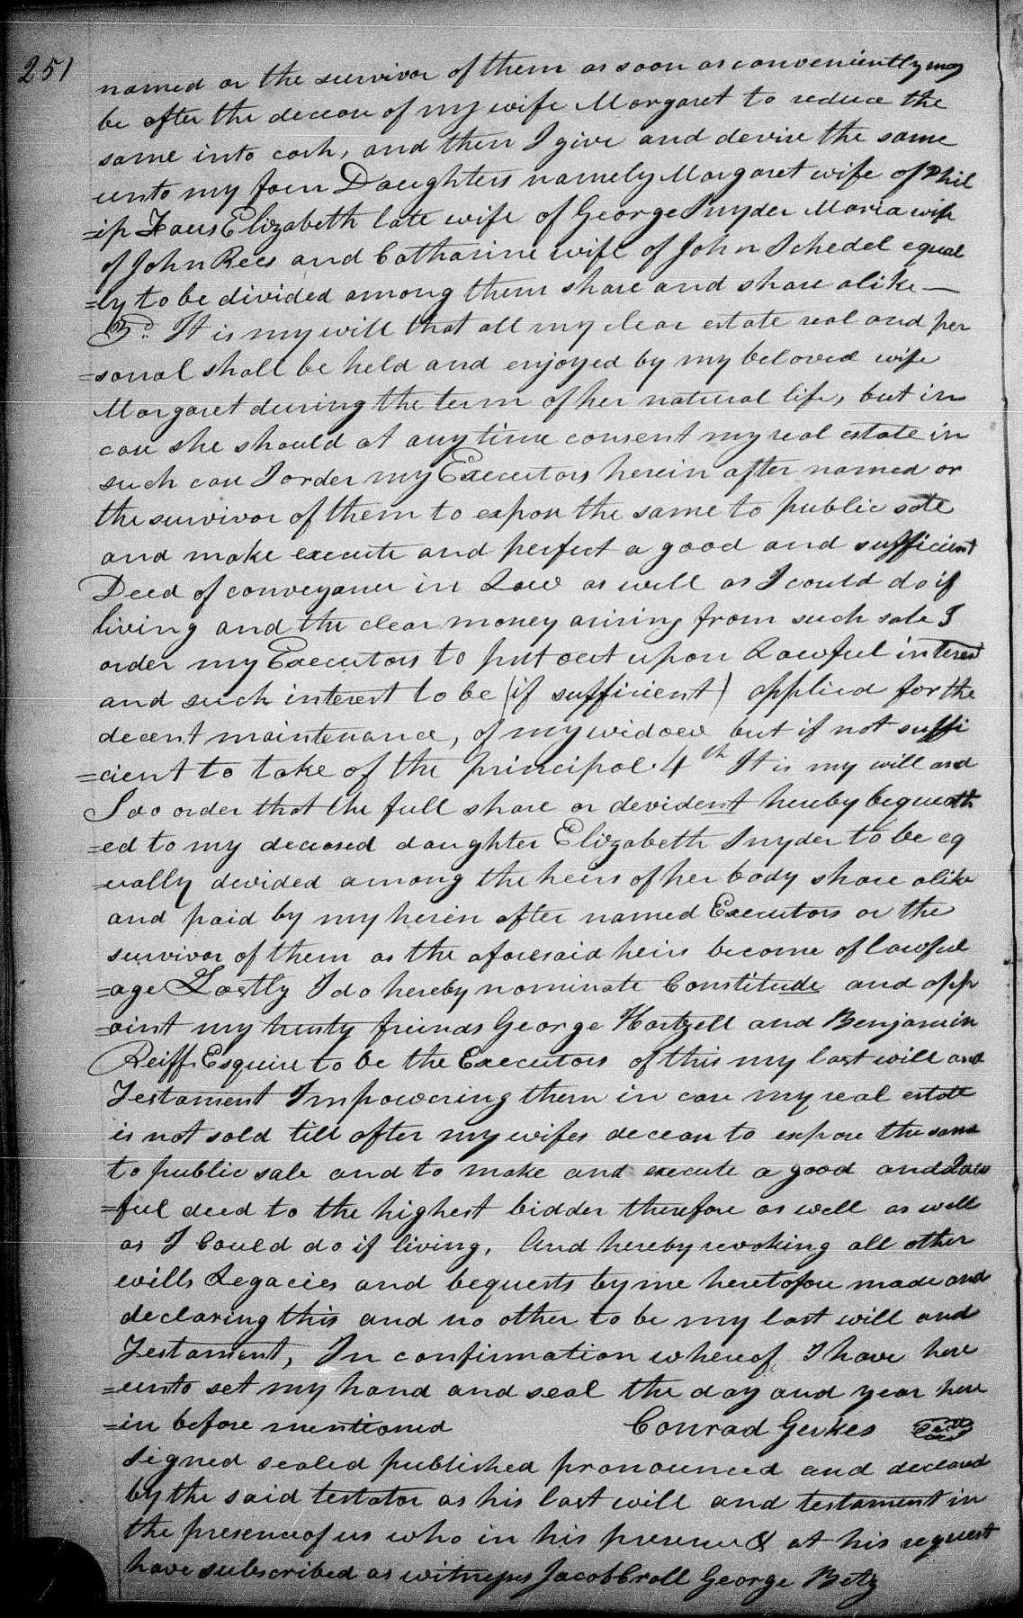 251
named or the survivor of them as soon as conveniently may
be after the decease of my wife Margaret to reduce the
same into cash, and then I give and devise the same
unto my four Daughters namely Margaret wife of Phil
=ip Elizabeth late wife of George Snyder Maria wife
of John Rees and Catharine wife of John Schedel equal
=ly to be divided among them share and share alike —
It is my will that all my clear estate real and per
=sonal shall be held and enjoyed by my beloved wife
Margaret during the term of her natural life, but in
case she should at any time consent my real estate in
such case I order my Executors herein after named or
the survivor of them to expose the same to public sale
and make execute and perfect a good and sufficient
Deed of conveyance in Law as well as I could do if
living and the clear money arising from such sale I
order my Executors to put out upon Lawful interest
and such interest to be (if sufficient) applied for the
decent maintenance, of my widow but if not suffi
=cient to take of the principal. 4th It is my will and
I do order that the full share or devident hereby bequeath
=ed to my deceased daughter Elizabeth Snyder to be eq
=ually devided among the heirs of her body share alike
and paid by my herein after named Executors or the
survivor of them as the aforesaid heirs become of lawful
=age Lastly I do hereby nominate Constitude and app
=oint my trusty friends George Hartzell and Benjamin
Reiff Esquire to be the Executors of this my last will and
Testament Impowering them in case my real estate
is not sold till after my wifes decease to expose the same
to public sale and to make and execute a good and Law
=ful deed to the highest bidder therefore as well as well
as I Could do if living, And hereby revoking all other
wills Legacies and bequests by me heretofore made and
declaring this and no other to be my last will and
Testament, In confirmation whereof I have here
=unto set my hand and seal the day and year here
=in before mentioned Conrad Gerkes Seal
Signed sealed published pronounced and declared
by the said testator as his last will and testament in
the presence of us who in his presence & at his request
have subscribed as witnesses Jacob Croll George Betz